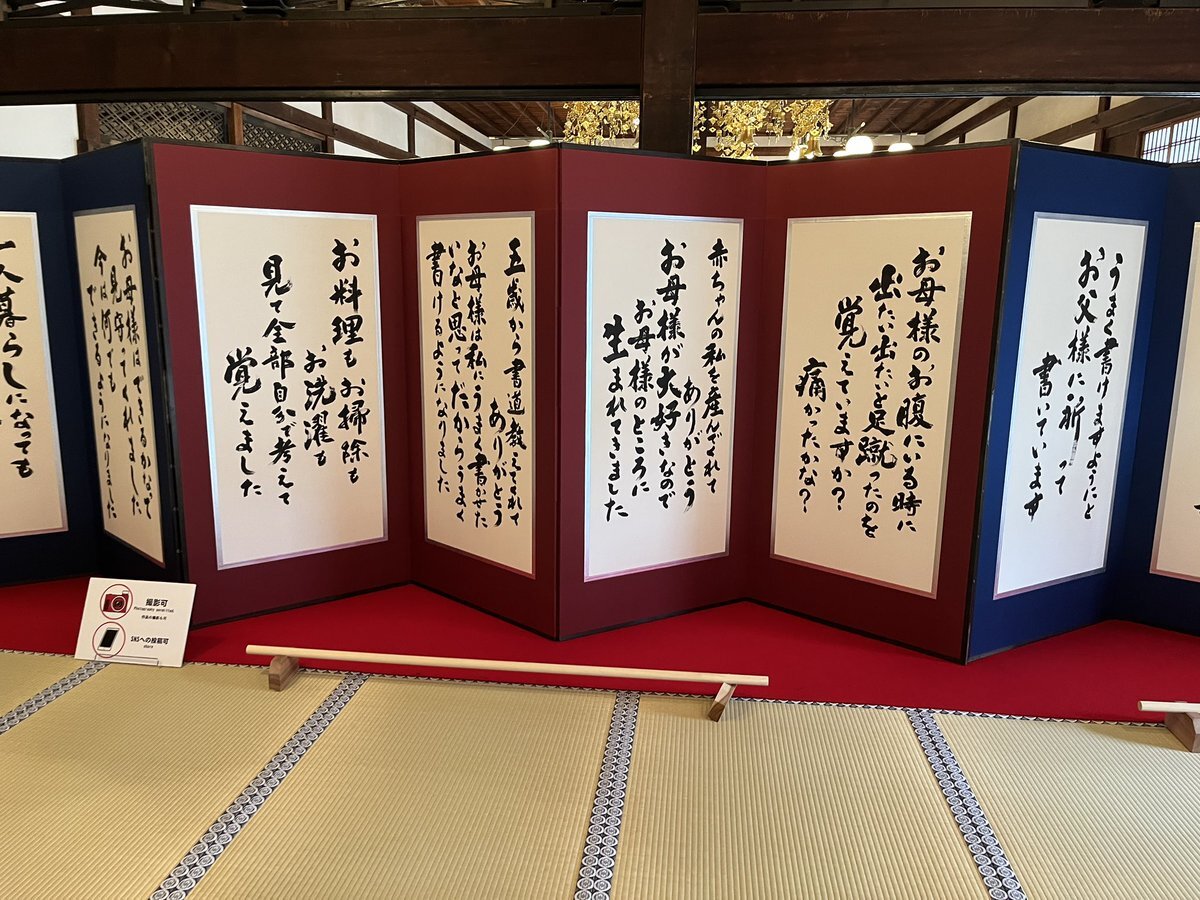 うまく書けますようにと
お父様に祈って
書いています
お母様のお腹にいる時に
出たい出たいと足蹴ったのを
覚えていますか?
痛かったかな?
赤ちゃんの私を産んでくれて
ありがとう
お母様が大好きなので
お母様のところに
生まれてきました
五歳から書道教えてくれて
ありがとう
お母様は私にうまく書かせた
いなと思ってだからうまく
書けるようになりました
お料理もお掃除も
お洗濯も
見て全部自分で考えて
覚えました
お母様はできるかなって
見守ってくれました
今は何でも
できるようになりました
一人暮らしになっても
撮影可
Photography permitted
SNSへの投稿可
share